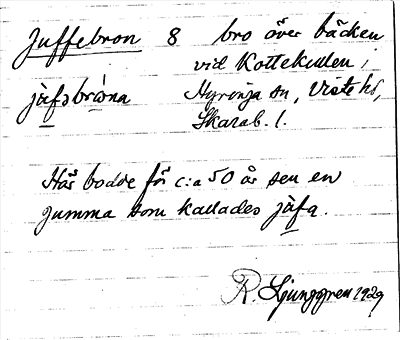 Juffebron 8 bro över bäcken
vid Kottekullen i
jùfəbròna Hyringa sn, Viste hd,
Skarab. l.
Här bodde för c:a 50 år sen en
gumma som kallades jùfa.
R. Ljunggren 1929